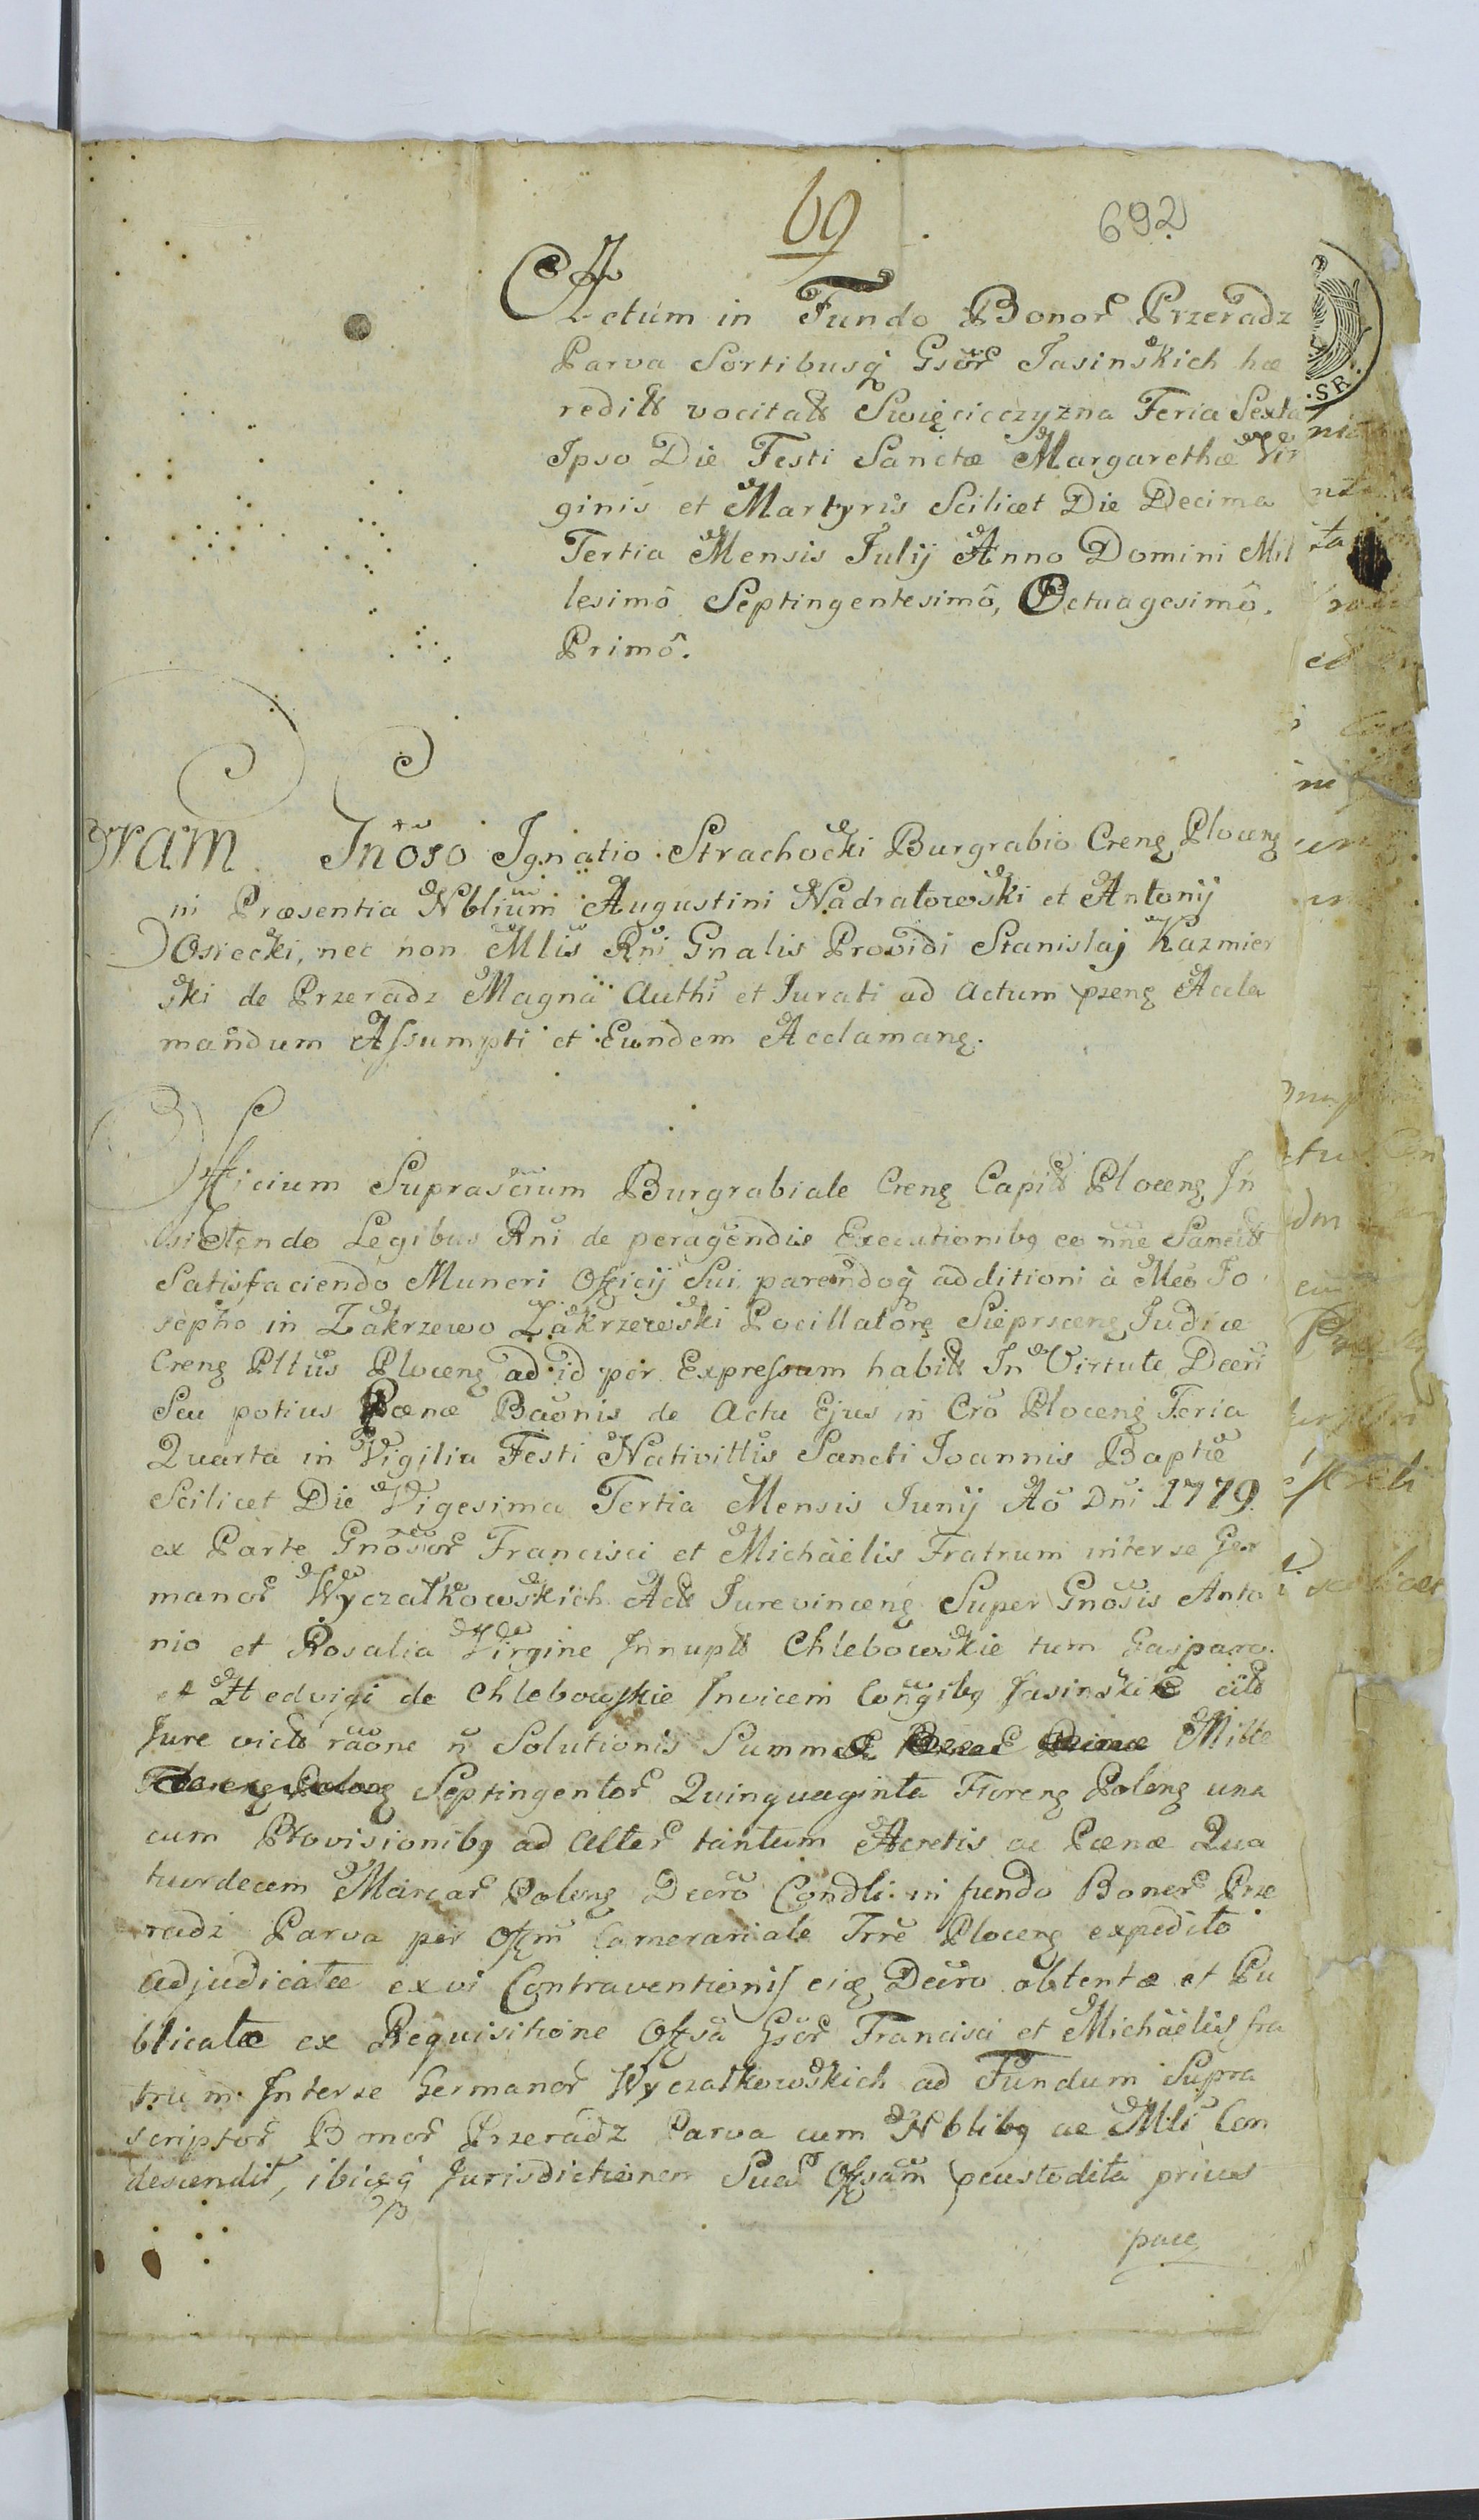 69
692
Actum in Fundo Bonor Przeradz
Parva Sortibusq Gsor Jasinskich hæ
redit vocitat Swięcicczyzna Feria Sexta
Ipso Die Festi Sanctæ Margarethæ Vir
ginis et Martyris Scilicet Die Decima
Tertia Mensis Julij Anno Domini Mil
lesimô Septingentesimô, Octuagesimô.
Primô.
SR
Coram Gnoso Ignatio Strachocki Burgrabio Creng Ploceng
in Præsentia Nblium Augustini Nadratowski et Antonij
Osiecki, nec non Mlis Rni Gnalis Providi Stanislaj Kazmier
ski de Przeradz Magna Authi et Jurati ad Actum pseng Accla
mandum Assumpti et Eundem Acclamang.
Officium Suprascium Burgrabiale Creng Capit Ploceng In
sistendo Legibus Rni de peragendis Executionibg eo nne Sancit
Satisfaciendo Muneri Officij Sui parendoq additioni à Mco Jo
sepho in Zakrzewo Zakrzewski Pocillatore Sieprsceng Judice
Creng Pltus Ploceng ad id per Expressum habit In Virtute Decri
Seu potius Pœnæ Baonis de Actu Ejus in Cro Ploceng Feria
Quarta in Vigilia Festi Nativittis Sancti Joannis Baptæ
Scilicet Die Vigesima Tertia Mensis Junij Ao Dni 1779.
ex Parte Gnosor Francisci et Michäelis Fratrum inter se Ger
manor Wyczałkowskich Act Jurevinceng Super Gnosis Anto
nio et Rosalia Virgine Innupt Chlebowskie tum Gasparo
et Hedvigi de Chlebowskie Invicem Congibg Jasinskie cit
Jure vict raone n Solutionis Summæ Mille
Septingentor Quinquaginta Floreng Poleng una
cum Provisionibg ad alter tantum Acretis ac Pœnæ Qua
tuordecem Marcar Poleng Decro Condli in fundo Bonor Prze
radz Parva per Offm Camerariale Trre Ploceng expedito
adjudicatæ ex vi Contraventionis eig Decro obtentæ et Pu
blicatæ ex Requisitione Offsa Gsor Francisci et Michäelis fra
trum Inter se Germanor Wyczałkowskich ad Fundum Supra
scriptor Bonor Przeradz Parva cum Nblibg ac Mli Con
descendit, ibiq Jurisdictionem Sua Offsam pcustodita prius
pace